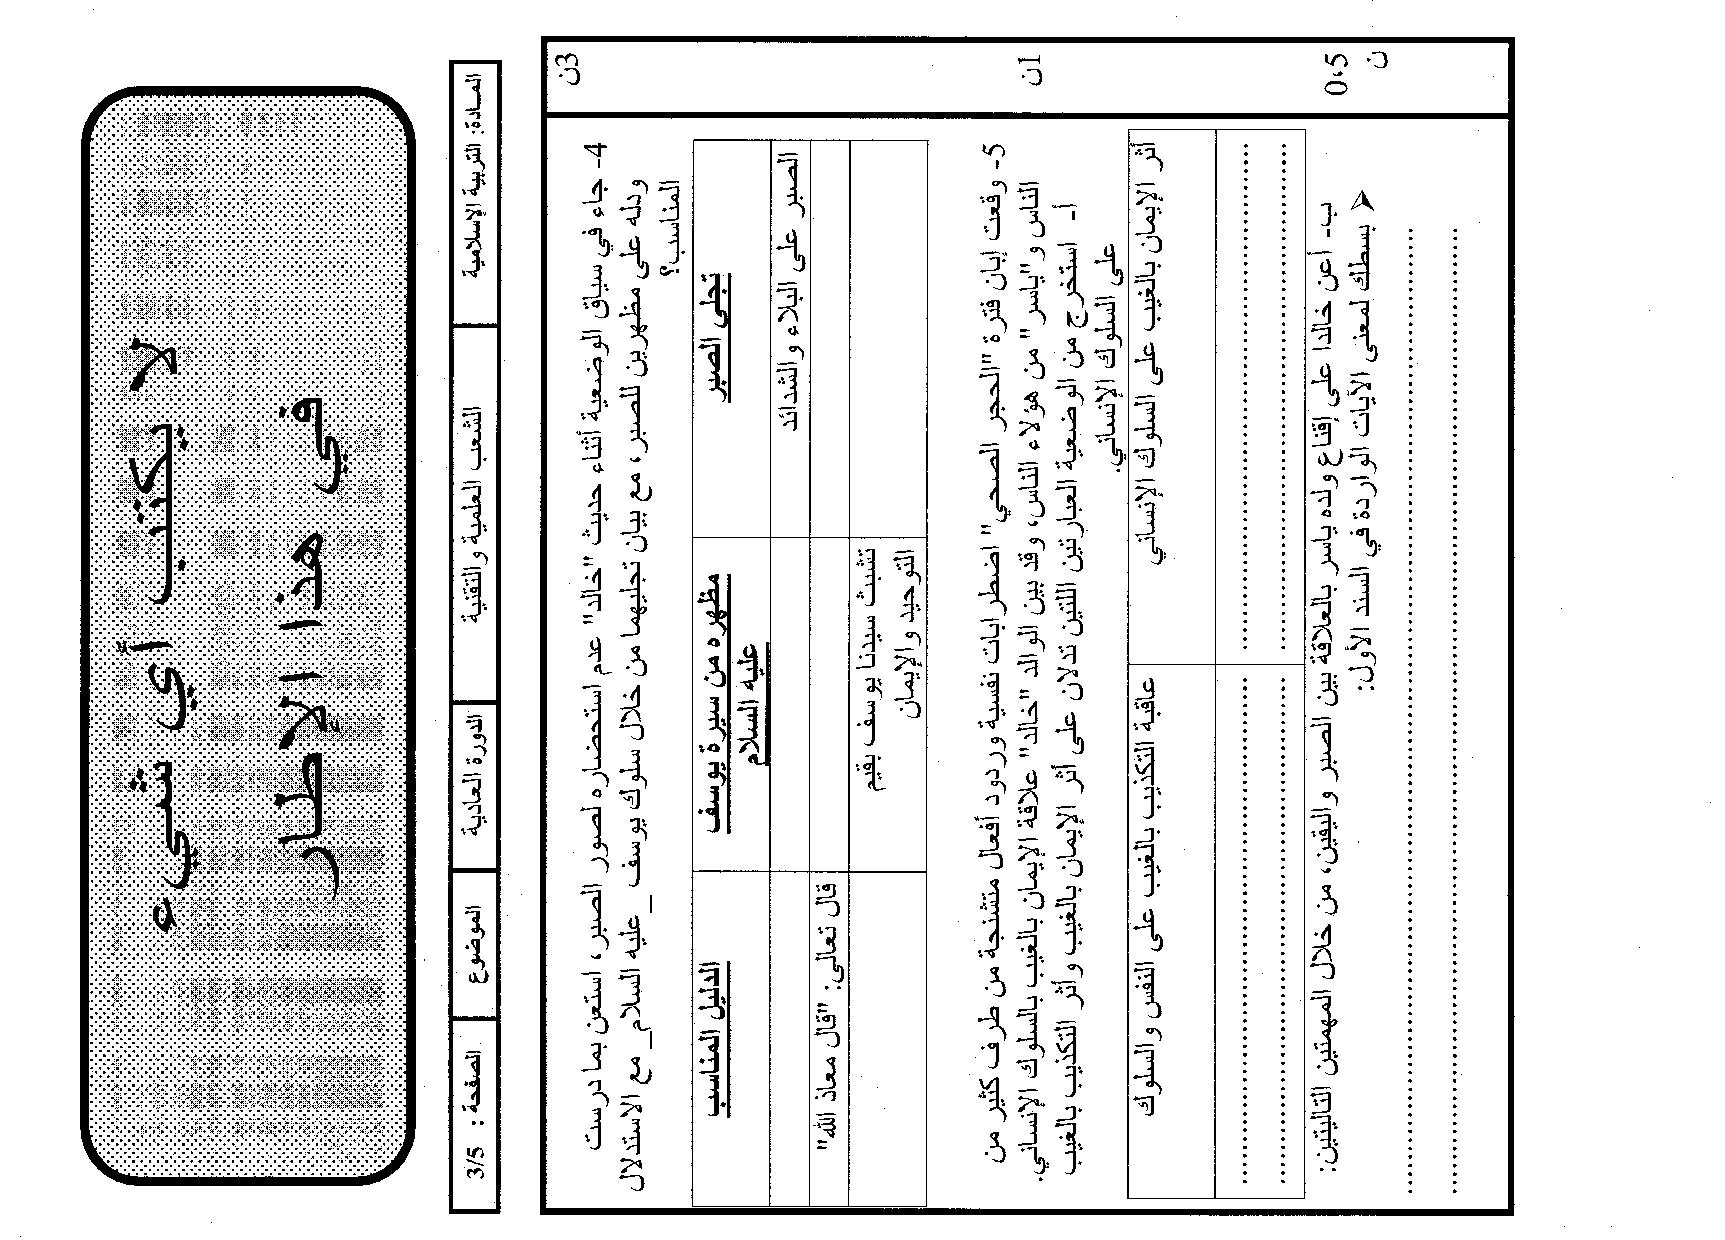 لا يكتب أي شيء
في هذا الإطار
المادة: التربية الإسلامية
الشعب العلمية والتقنية
الدورة العادية
الموضوع
الصفحة : 3/5
3ن
4- جاء في سياق الوضعية أثناء حديث "خالد" عدم استحضاره لصور الصبر، استعن بما درست
ودله على مظهرين للصبر، مع بيان تجليهما من خلال سلوك يوسف _ عليه السلام_ مع الاستدلال
المناسب؟
تجلي الصبر
مظهره من سيرة يوسف
عليه السلام
الدليل المناسب
الصبر على البلاء والشدائد
قال تعالى: "قال معاذ الله"
تشبث سيدنا يوسف بقيم
التوحيد والإيمان
1ن
5- وقعت إبان فترة "الحجر الصحي" اضطرابات نفسية وردود أفعال متشنجة من طرف كثير من
الناس و"ياسر" من هؤلاء الناس، وقد بين الوالد "خالد" علاقة الإيمان بالغيب بالسلوك الإنساني.
أ- استخرج من الوضعية العبارتين اللتين تدلان على أثر الإيمان بالغيب وأثر التكذيب بالغيب
على السلوك الإنساني.
أثر الإيمان بالغيب على السلوك الإنساني
عاقبة التكذيب بالغيب على النفس والسلوك
........................................
........................................
........................................
........................................
0،5
ن
ب- أعن خالدا على إقناع ولده ياسر بالعلاقة بين الصبر واليقين، من خلال المهمتين التاليتين:
➢ بسطك لمعنى الآيات الواردة في السند الأول:
................................................................................
................................................................................